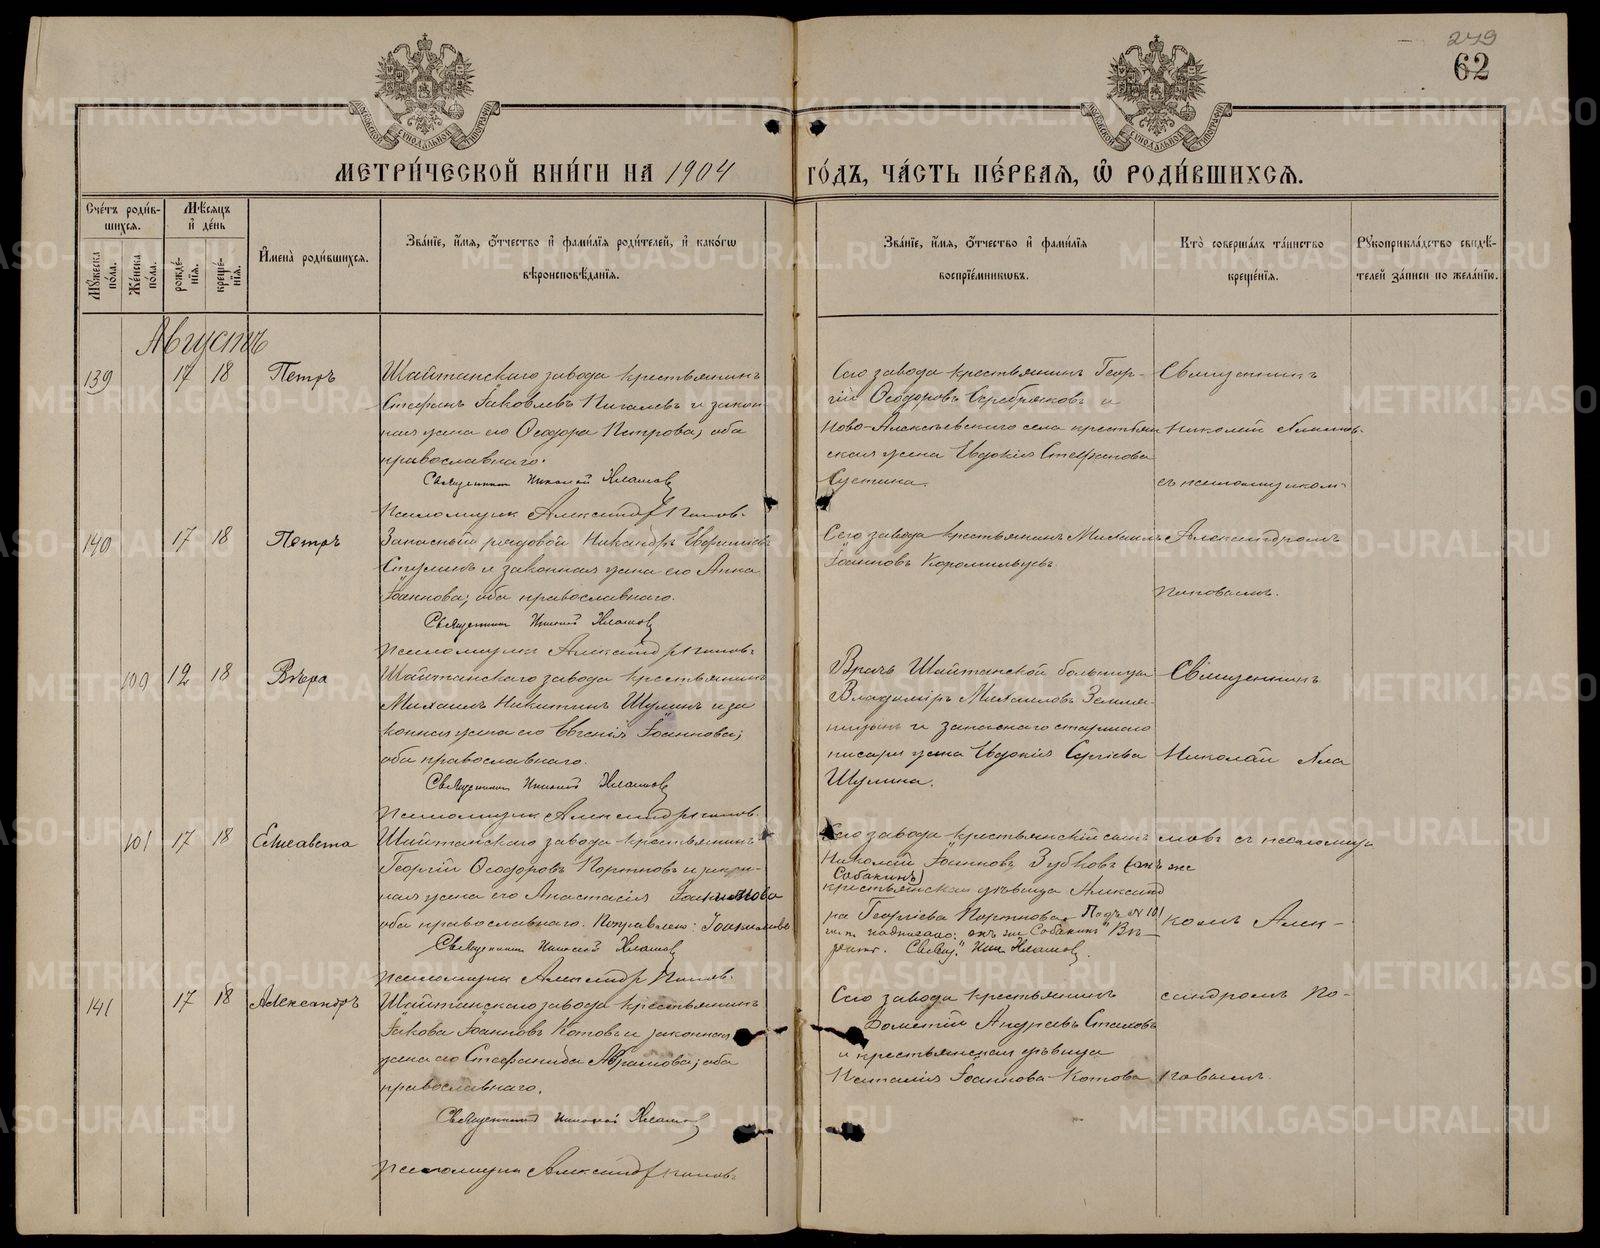 279
62
МОСКОВСКОЙ СѴНОДАЛЬНОЙ ТИПОГРАФІИ
МОСКОВСКОЙ СѴНОДАЛЬНОЙ ТИПОГРАФІИ
МЕТРИ́ЧЕСКОЙ КНИ́ГИ НА 1904 ГО́ДЪ, ЧА́СТЬ ПЕ́РВАѦ, Ѡ РОДИ́ВШИХСѦ.
Сче́тъ роди́в-
шихсѧ.
Мꙋ́жеска по́ла.
Же́нска по́ла.
Мѣ́сѧцъ и҆ де́нь
рожде́-
нїѧ.
креще́-
нїѧ.
И҆мена̀ роди́вшихсѧ.
Зва́нїе, и҆́мѧ, ѻ҆́тчество и҆ фамн́лїѧ роди́телей, и҆ како́гѡ
вѣроисповѣ́данїѧ.
Зва́нїе, и҆́мѧ, ѻ҆́тчество и҆ фами́лїѧ
воспрїе́мникѡвъ.
Кто̀ соверша́лъ та́инство
креще́нїѧ.
Рꙋкоприкла́дство свидѣ́-
телей за́писи по жела́нїю.
Августъ
139 17 18 Петръ
Шайтанскаго завода крестьянинъ
Стефанъ Іаковлевъ Пигалевъ и закон-
ная жена его Ѳеодора Петрова; оба
православнаго.
Священникъ Николай Хламовъ
Псаломщикъ Александръ Поповъ.
Сего завода крестьянинъ Геор-
гій Ѳеодоровъ Серебряковъ и
Ново-Алексѣевскаго села крестьян
ская жена Евдокія Стефанова
Сустина.
Священникъ
Николай Хламов.
съ псаломщиком-
140 17 18 Петръ
Запасный рядовой Никандръ Евфиміевъ
и законная жена его Анна
Іоаннова; оба православнаго.
Священникъ Николай Хламовъ
Псаломщикъ Александръ Поповъ.
Сего завода крестьянинъ Михаилъ
Іоанновъ Коромыльцевъ
Александромъ
Поповымъ.
100 12 18 Вѣра
Шайтанскаго завода крестьянинъ
Михаилъ Никитинъ Шулинъ и за
конная жена его Евгенія Іоаннова;
оба православнаго.
Священникъ Николай Хламовъ
Псаломщикъ Александръ Поповъ.
Врачъ Шайтанской больницы
Владиміръ Михаиловъ Земля-
ницынъ и запаснаго старшаго
писаря жена Евдокія Сергіева
Шулина.
Священникъ
Николай Хла
101 17 18 Елисавета
Шайтанскаго завода крестьянинъ
Георгій Ѳеодоровъ Портновъ и закон-
ная жена его Анастасія Іоакимова
оба православнаго. Поправлено: Іоакимова
Священникъ Николай Хламовъ
Псаломщикъ Александръ Поповъ.
Сего завода крестьянскій сынъ
Николай Іоанновъ Зубковъ (онъ же
Собакинъ)
крестьянская дѣвица Александ
ра Георгіева Портнова. Подъ № 101
надписано: онъ же Собакинъ" Вѣ-
рить. Свящ. Ник Хламовъ.
мовъ съ псаломщи
комъ Алек-
141 17 18 Александръ
Шайтанскаго завода крестьянинъ
Іакова Іоанновъ Котовъ и законная
жена его Стефанида Абрамова; оба
православнаго.
Священникъ Николай Хламовъ
Псаломщикъ Александръ Поповъ.
Сего завода крестьянинъ
Дометій Андреевъ Стаховъ
и крестьянская дѣвица
Наталія Іоаннова Котова
сандромъ По-
повымъ.
METRIKI.GASO-URAL.RU